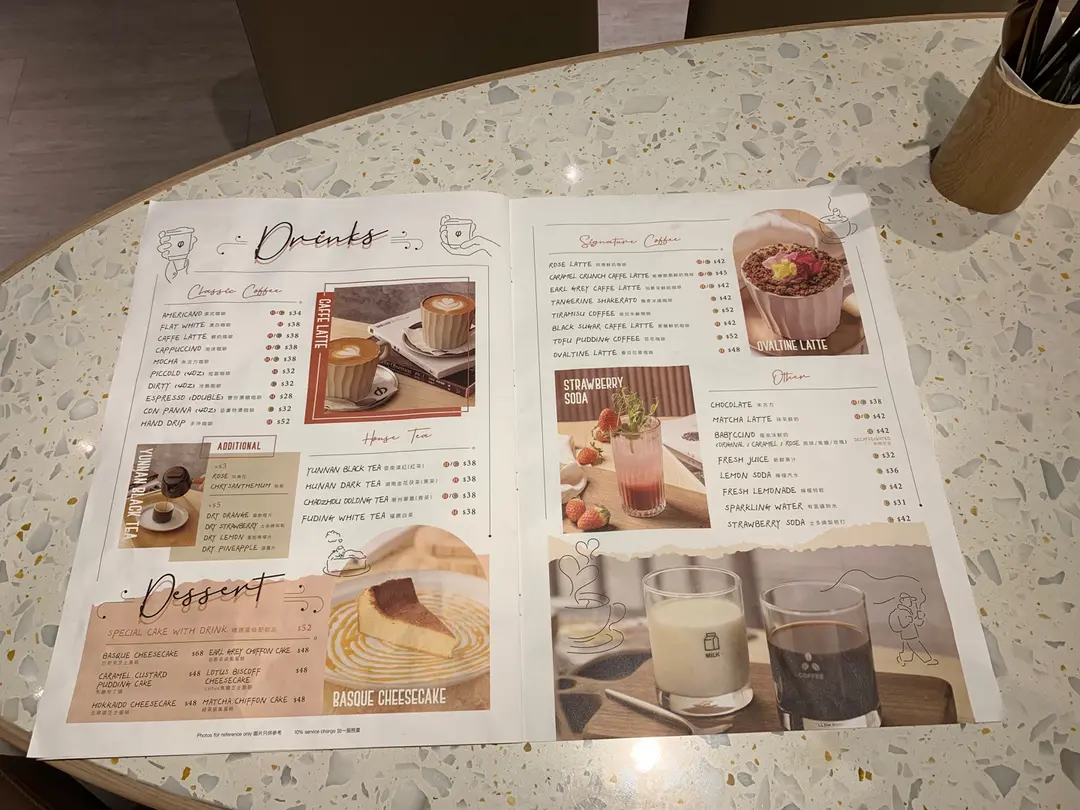 Drinks
Classic Coffee
AMERICANO 美式咖啡 $34
FLAT WHITE 澳白咖啡 $38
CAFFE LATTE 鮮奶咖啡 $38
CAPPUCCINO 泡沫咖啡 $38
MOCHA 朱古力咖啡 $38
PICCOLO (4OZ) $32
DIRTY (4OZ) $32
ESPRESSO (DOUBLE) $28
CON PANNA (4OZ) $32
HAND DRIP 手沖咖啡 $52
CAFFE LATTE
YUNNAN BLACK TEA
ADDITIONAL
+$3
ROSE
CHRYSANTHEMUM
+$5
DRY ORANGE
DRY STRAWBERRY
DRY LEMON
DRY PINEAPPLE
House Tea
YUNNAN BLACK TEA 雲南滇紅(紅茶) $38
HUNAN DARK TEA 湖南金花茯茶(黑茶) $38
CHAOZHOU OOLONG TEA $38
FUDING WHITE TEA 福鼎白茶 $38
Dessert
SPECIAL CAKE WITH DRINK $52
BASQUE CHEESECAKE $68
CARAMEL CUSTARD PUDDING CAKE $48
HOKKAIDO CHEESECAKE $48
EARL GREY CHIFFON CAKE $48
LOTUS BISCOFF CHEESECAKE $48
MATCHA CHIFFON CAKE $48
BASQUE CHEESECAKE
Photos for reference only 圖片只供參考 10% service charge 加一服務費
Signature Coffee
ROSE LATTE $42
CARAMEL CRUNCH CAFFE LATTE $45
EARL GREY CAFFE LATTE $42
TANGERINE SHAKERATO $42
TIRAMISU COFFEE $52
BLACK SUGAR CAFFE LATTE $42
TOFU PUDDING COFFEE $52
OVALTINE LATTE $48
OVALTINE LATTE
STRAWBERRY
SODA
Other
CHOCOLATE 朱古力 $38
MATCHA LATTE 抹茶鮮奶 $42
BABYCCINO $42
(ORIGINAL / CARAMEL / ROSE 原味/焦糖/玫瑰)
FRESH JUICE 新鮮果汁 $32
LEMON SODA 檸檬汽水 $36
FRESH LEMONADE 檸檬特飲 $42
SPARKLING WATER 有氣礦泉水 $31
STRAWBERRY SODA 士多啤梨梳打 $42
MILK
COFFEE